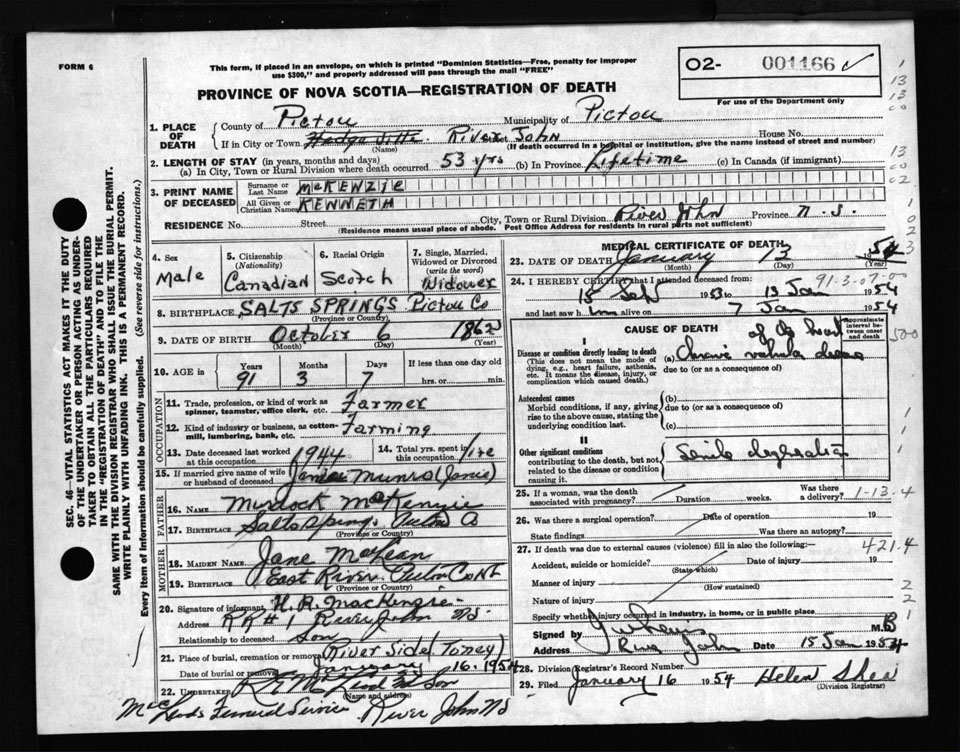 FORM 6
This form, if placed in an envelope, on which is printed "Dominion Statistics—Free, penalty for improper
use $300," and properly addressed will pass through the mail "FREE"
O2- 001166
For use of the Department only
PROVINCE OF NOVA SCOTIA—REGISTRATION OF DEATH
1. PLACE OF DEATH
County of Pictou Municipality of Pictou
If in City or Town River John House No.
(Name) (If death occurred in a hospital or institution, give the name instead of street and number)
2. LENGTH OF STAY (in years, months and days)
(a) In City, Town or Rural Division where death occurred 53 yrs (b) In Province Lifetime (c) In Canada (if immigrant)
3. PRINT NAME OF DECEASED
Surname or Last Name McKENZIE
All Given or Christian Names KENNETH
RESIDENCE No. Street City, Town or Rural Division River John Province N.S.
(Residence means usual place of abode. Post Office Address for residents in rural parts not sufficient)
4. Sex Male
5. Citizenship (Nationality) Canadian
6. Racial Origin Scotch
7. Single, Married, Widowed or Divorced (write the word) Widower
8. BIRTHPLACE SALTS SPRINGS Pictou Co
(Province or Country)
9. DATE OF BIRTH October 6 1862
(Month) (Day) (Year)
10. AGE in Years 91 Months 3 Days 7 If less than one day old hrs. or min.
OCCUPATION
11. Trade, profession, or kind of work as spinner, teamster, office clerk, etc. Farmer
12. Kind of industry or business, as cotton-mill, lumbering, bank, etc. Farming
13. Date deceased last worked at this occupation 1944
14. Total yrs. spent in this occupation Life
15. If married give name of wife or husband of deceased Munro (Janie)
FATHER
16. NAME Murdock MacKenzie
17. BIRTHPLACE Salt Springs Pictou Co
(Province or Country)
MOTHER
18. MAIDEN NAME Jane MacLean
19. BIRTHPLACE East River Pictou Co
(Province or Country)
20. Signature of informant H. R. MacKenzie
Address RR #1 River John NS
Relationship to deceased Son
21. Place of burial, cremation or removal River Side Toney
Date of burial or removal January 16. 1954
22. UNDERTAKER
(Name and address)
MacLeods Funeral Service River John NS
MEDICAL CERTIFICATE OF DEATH
23. DATE OF DEATH January 13 1954
(Month) (Day)
24. I HEREBY CERTIFY that I attended deceased from:
15 1953 to 13 Jan 1954
and last saw him alive on 7 Jan 1954
CAUSE OF DEATH
Approximate interval between onset and death
I
Disease or condition directly leading to death
(This does not mean the mode of dying, e.g., heart failure, asthenia, etc. It means the disease, injury, or complication which caused death.)
(a) chronic valvular disease of the heart
due to (or as a consequence of)
Antecedent causes
Morbid conditions, if any, giving rise to the above cause, stating the underlying condition last.
(b)
due to (or as a consequence of)
(c)
II
Other significant conditions
contributing to the death, but not related to the disease or condition causing it.
Senile
25. If a woman, was the death associated with pregnancy? Duration weeks. Was there a delivery?
1-13-4
26. Was there a surgical operation? Date of operation 19
State findings Was there an autopsy?
27. If death was due to external causes (violence) fill in also the following:—
421.4
Accident, suicide or homicide? Date of injury 19
(State which)
Manner of injury
(How sustained)
Nature of injury
Specify whether injury occurred in industry, in home, or in public place
Signed by M.B
Address River John Date 15 Jan 1954
28. Division Registrar's Record Number
29. Filed January 16 1954 Helen Shea
(Division Registrar)
SEC. 46—VITAL STATISTICS ACT MAKES IT THE DUTY
OF THE UNDERTAKER OR PERSON ACTING AS UNDER-
TAKER TO OBTAIN ALL THE PARTICULARS REQUIRED
IN THE "REGISTRATION OF DEATH" AND TO FILE THE
SAME WITH THE DIVISION REGISTRAR WHO SHALL ISSUE THE BURIAL PERMIT.
WRITE PLAINLY WITH UNFADING INK. THIS IS A PERMANENT RECORD.
Every item of information should be carefully supplied. (See reverse side for instructions.)